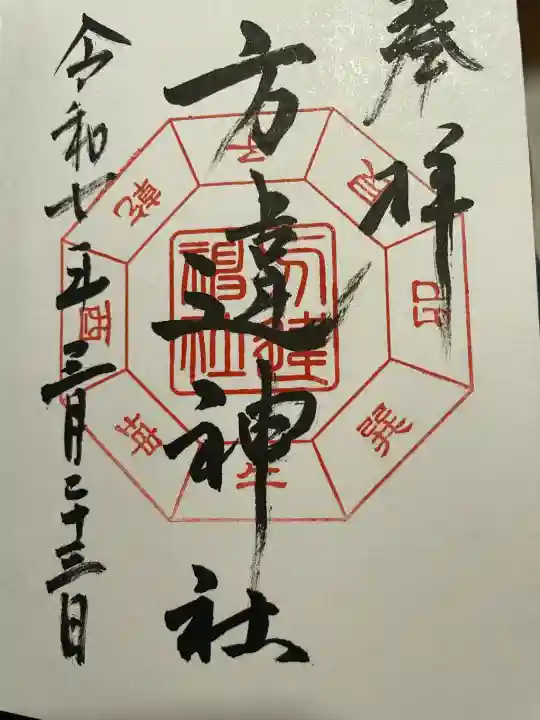 奉拝
方違神社
令和七年三月二十三日
方違神社
子
艮
卯
巽
午
坤
酉
乾